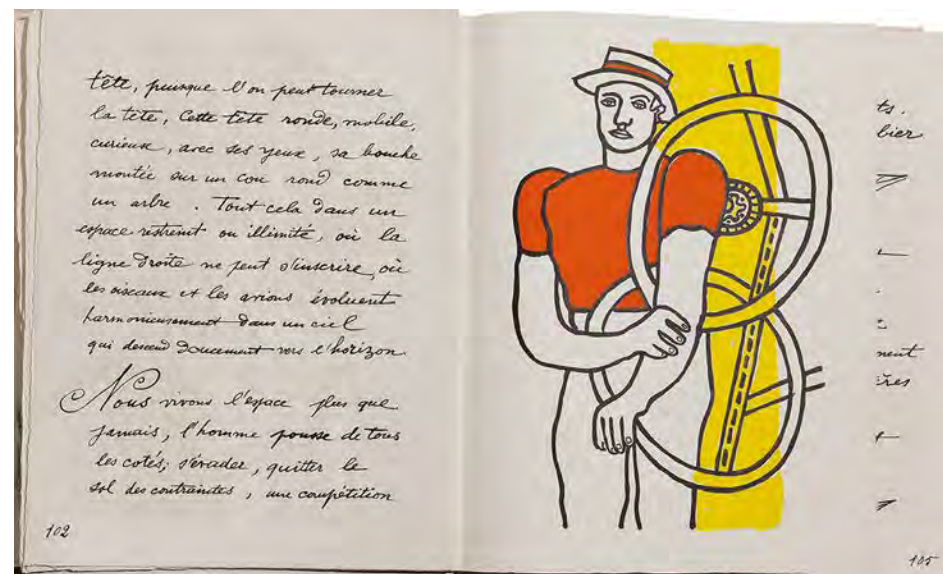 tête, puisque l'on peut tourner
la tête, Cette tête ronde, mobile,
curieuse, avec ses yeux, sa bouche
montée sur un cou rond comme
un arbre. Tout cela dans un
espace restreint ou illimité, où la
ligne droite ne peut s'inscrire, où
les oiseaux et les avions évoluent
harmonieusement dans un ciel
qui descend doucement vers l'horizon.
Nous vivons l'espace plus que
jamais, l'homme pousse de tous
les cotés; s'évader, quitter le
sol des contraintes, une compétition
102
ts.
bier
nent
ères
105